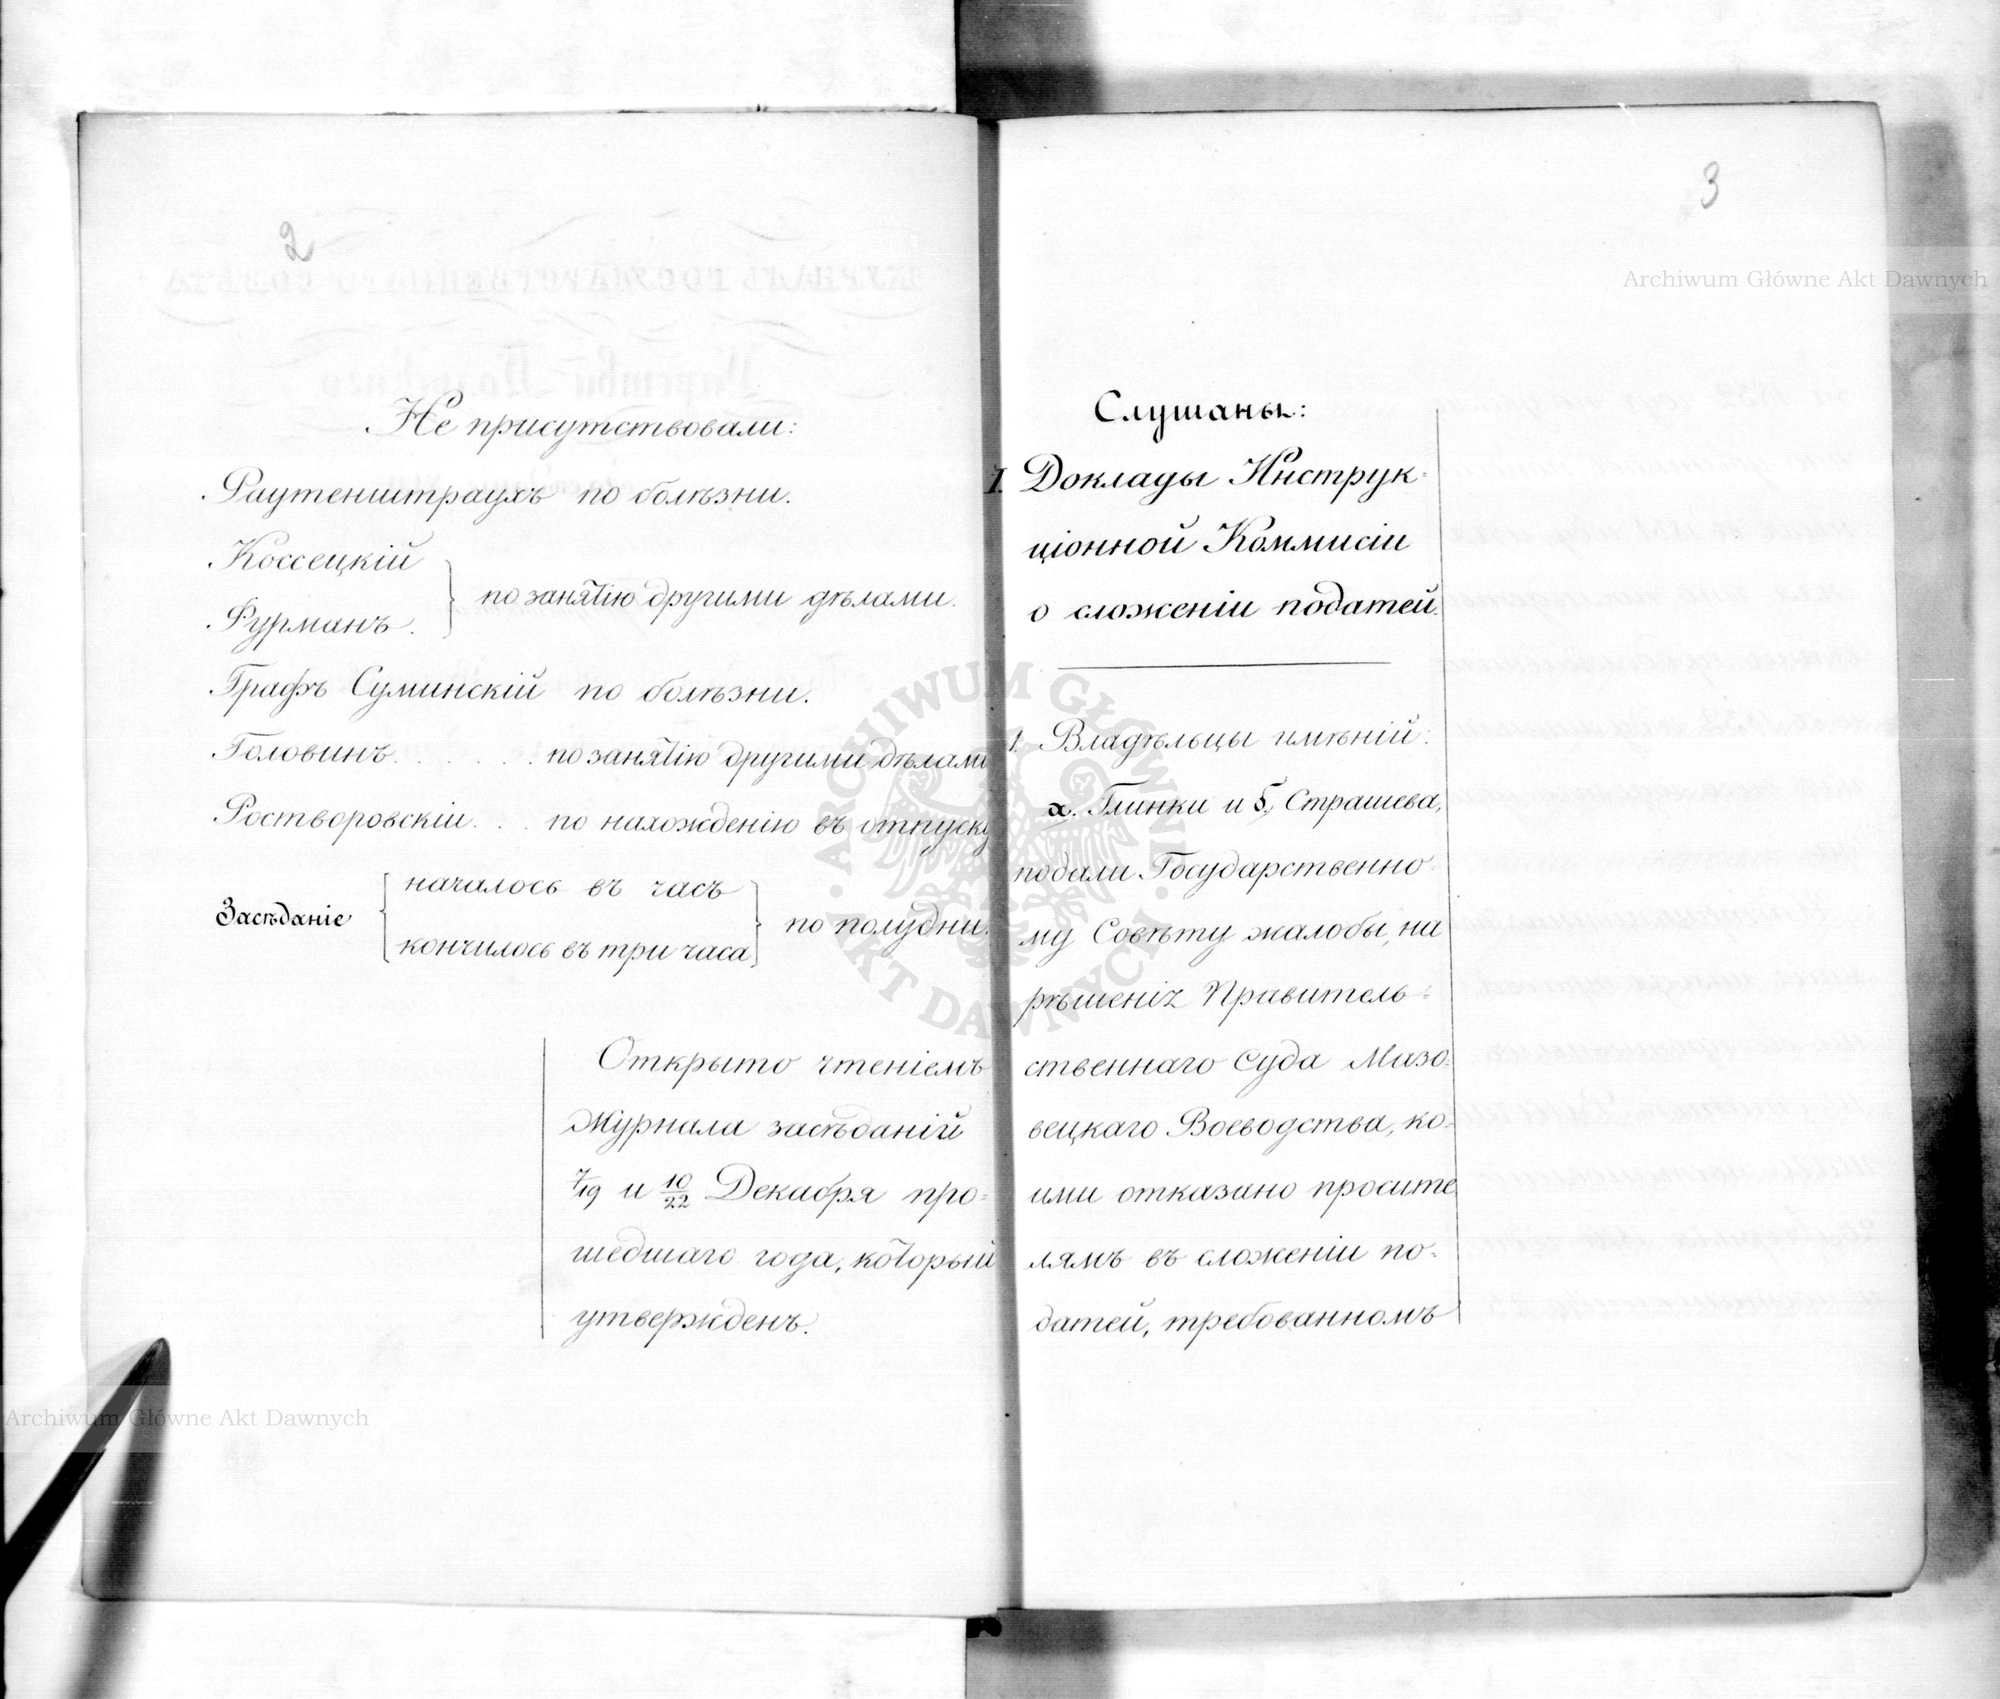 2
Не присутствовали:
Раутенштраухъ по болѣзни.
Коссецкій
Фурманъ.
по занятію другими дѣлами.
Графъ Суминскій по болѣзни.
Головинъ. . . . . . по занятію другими дѣлами
Ростворовскіи. . . по нахожденію въ отпуску
Засѣданіе
началось въ часъ
кончилось въ три часа
по полудни.
Открыто чтеніемъ
Журнала засѣданій
7/19 и 10/22 Декабря про-
шедшаго года, который
утвержденъ.
3
Слушаны:
I. Доклады Инструк-
ціонной Коммисіи
о сложеніи податей.
1. Владѣльцы имѣній:
а. Глинки и б, Страшева,
подали Государственно-
му Совѣту жалобы, на
рѣшенія Правитель-
ственнаго Суда Мазо-
вецкаго Воеводства, ко-
ими отказано просите
лямъ въ сложеніи по-
датей, требованномъ
Archiwum Główne Akt Dawnych
Archiwum Główne Akt Dawnych
ARCHIWUM GŁÓWNE AKT DAWNYCH